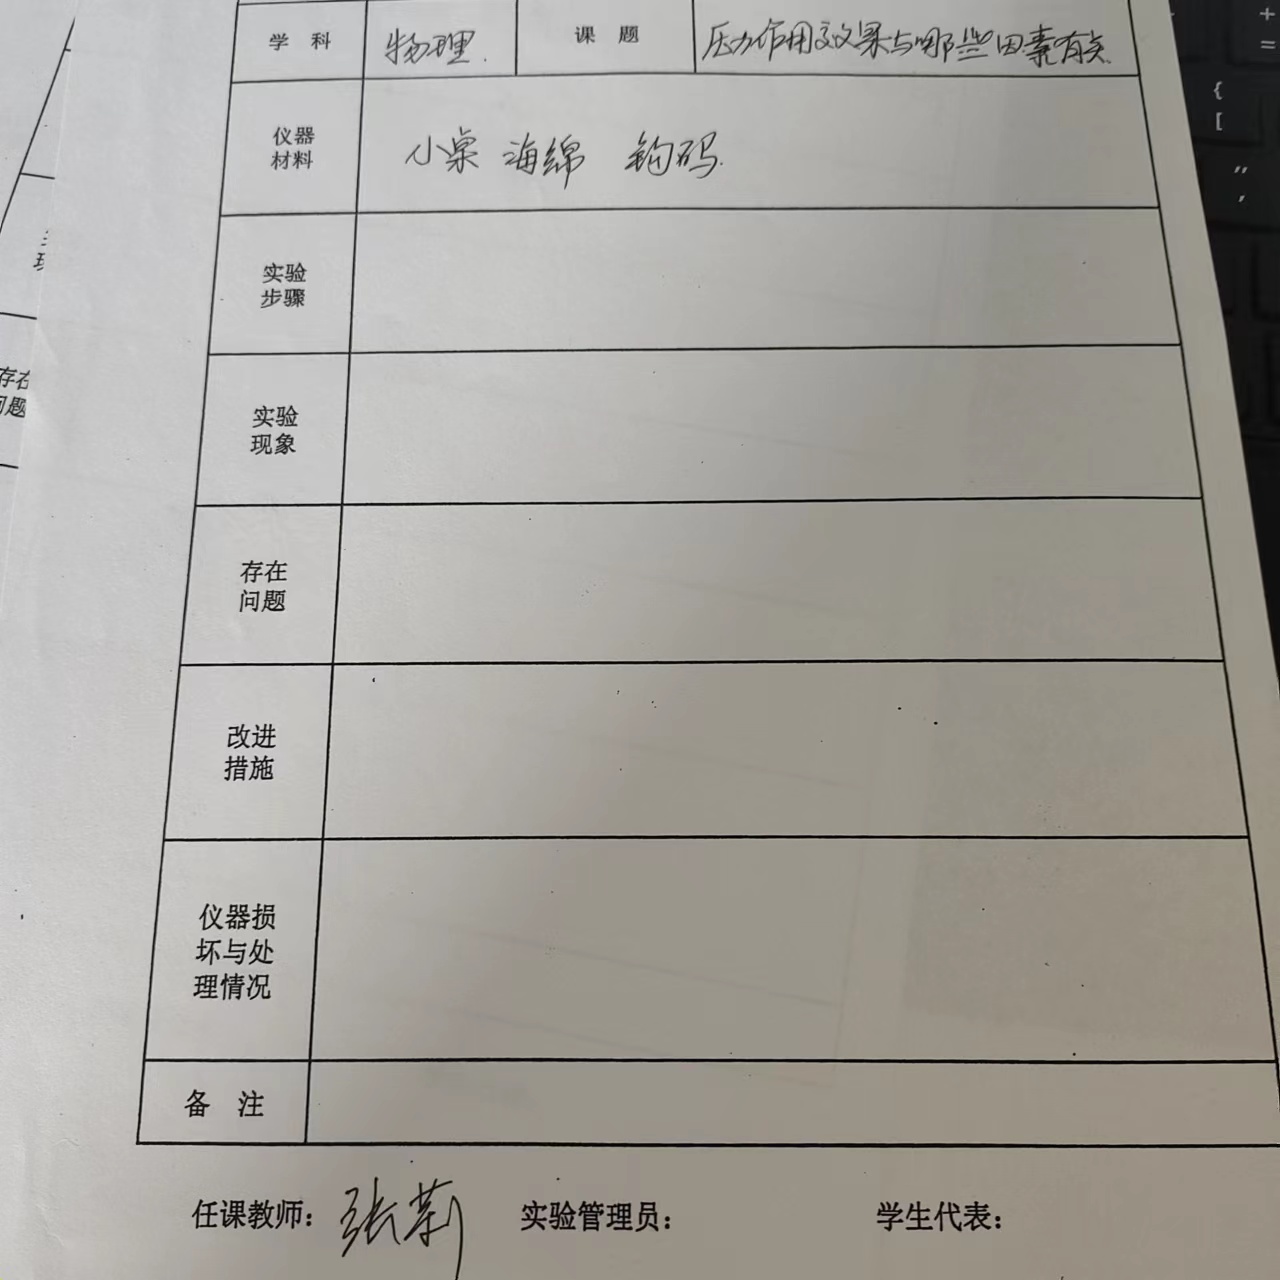 学 科 物理. 课 题 压力作用效果与哪些因素有关.
仪器
材料
小桌 海绵 钩码.
实验
步骤
实验
现象
存在
问题
改进
措施
仪器损
坏与处
理情况
备 注
任课教师： 张莉 实验管理员： 学生代表：
存在
问题
+
=
{
[
"
,